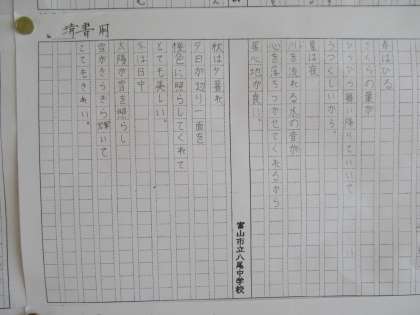 清書用
春はひる
さくらの葉が
ひらひら舞い降りていて
うつくしいから。
夏は夜
川を流れる水の音が
心を落ちつかせてくれるから
居心地が良い。
秋は夕暮れ
夕日が辺り一面を
橙色に照らしてくれて
とても美しい。
冬は日中
太陽が雪を照らし
雪がきらきら輝いて
とてもきれい。
富山市立八尾中学校